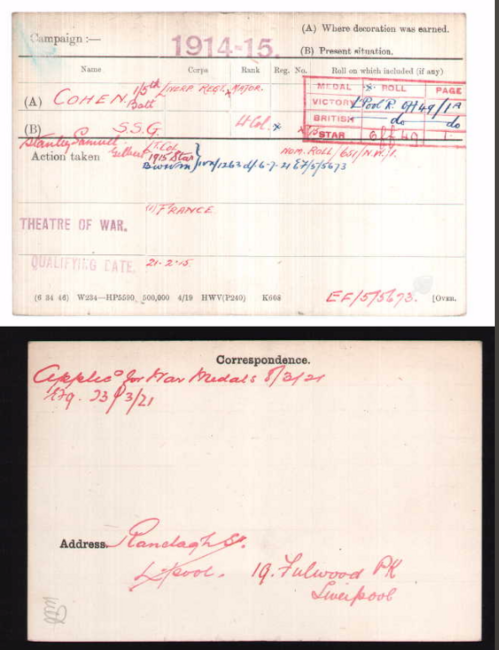 Campaign :— 1914-15. (A) Where decoration was earned.
(B) Present situation.
Name Corps Rank Reg. No. Roll on which included (if any)
MEDAL x ROLL PAGE
(A) COHEN. 1/5th Batt L'pool Regt x Major. VICTORY L'Pool R Off 49/1A
BRITISH do do
(B) S.S.G. Lt Col. x STAR 6 Off 49 1
Stanley Samuel Gilbert Lt Col Nom. Roll/651/N.W./1.
Action taken 1915 Star
BWVM IVX/1262 d/6-7-21 EF/5/5673
(1) FRANCE
THEATRE OF WAR.
QUALIFYING DATE. 21-2-15.
(6 34 46) W234—HP5590 500,000 4/19 HWV(P240) K608 EF/5/5673. [OVER.
Correspondence.
Applicn for War Medals 8/3/21
23/3/21
Address. Ranelagh St.
L'pool. 19. Fulwood PK
Liverpool